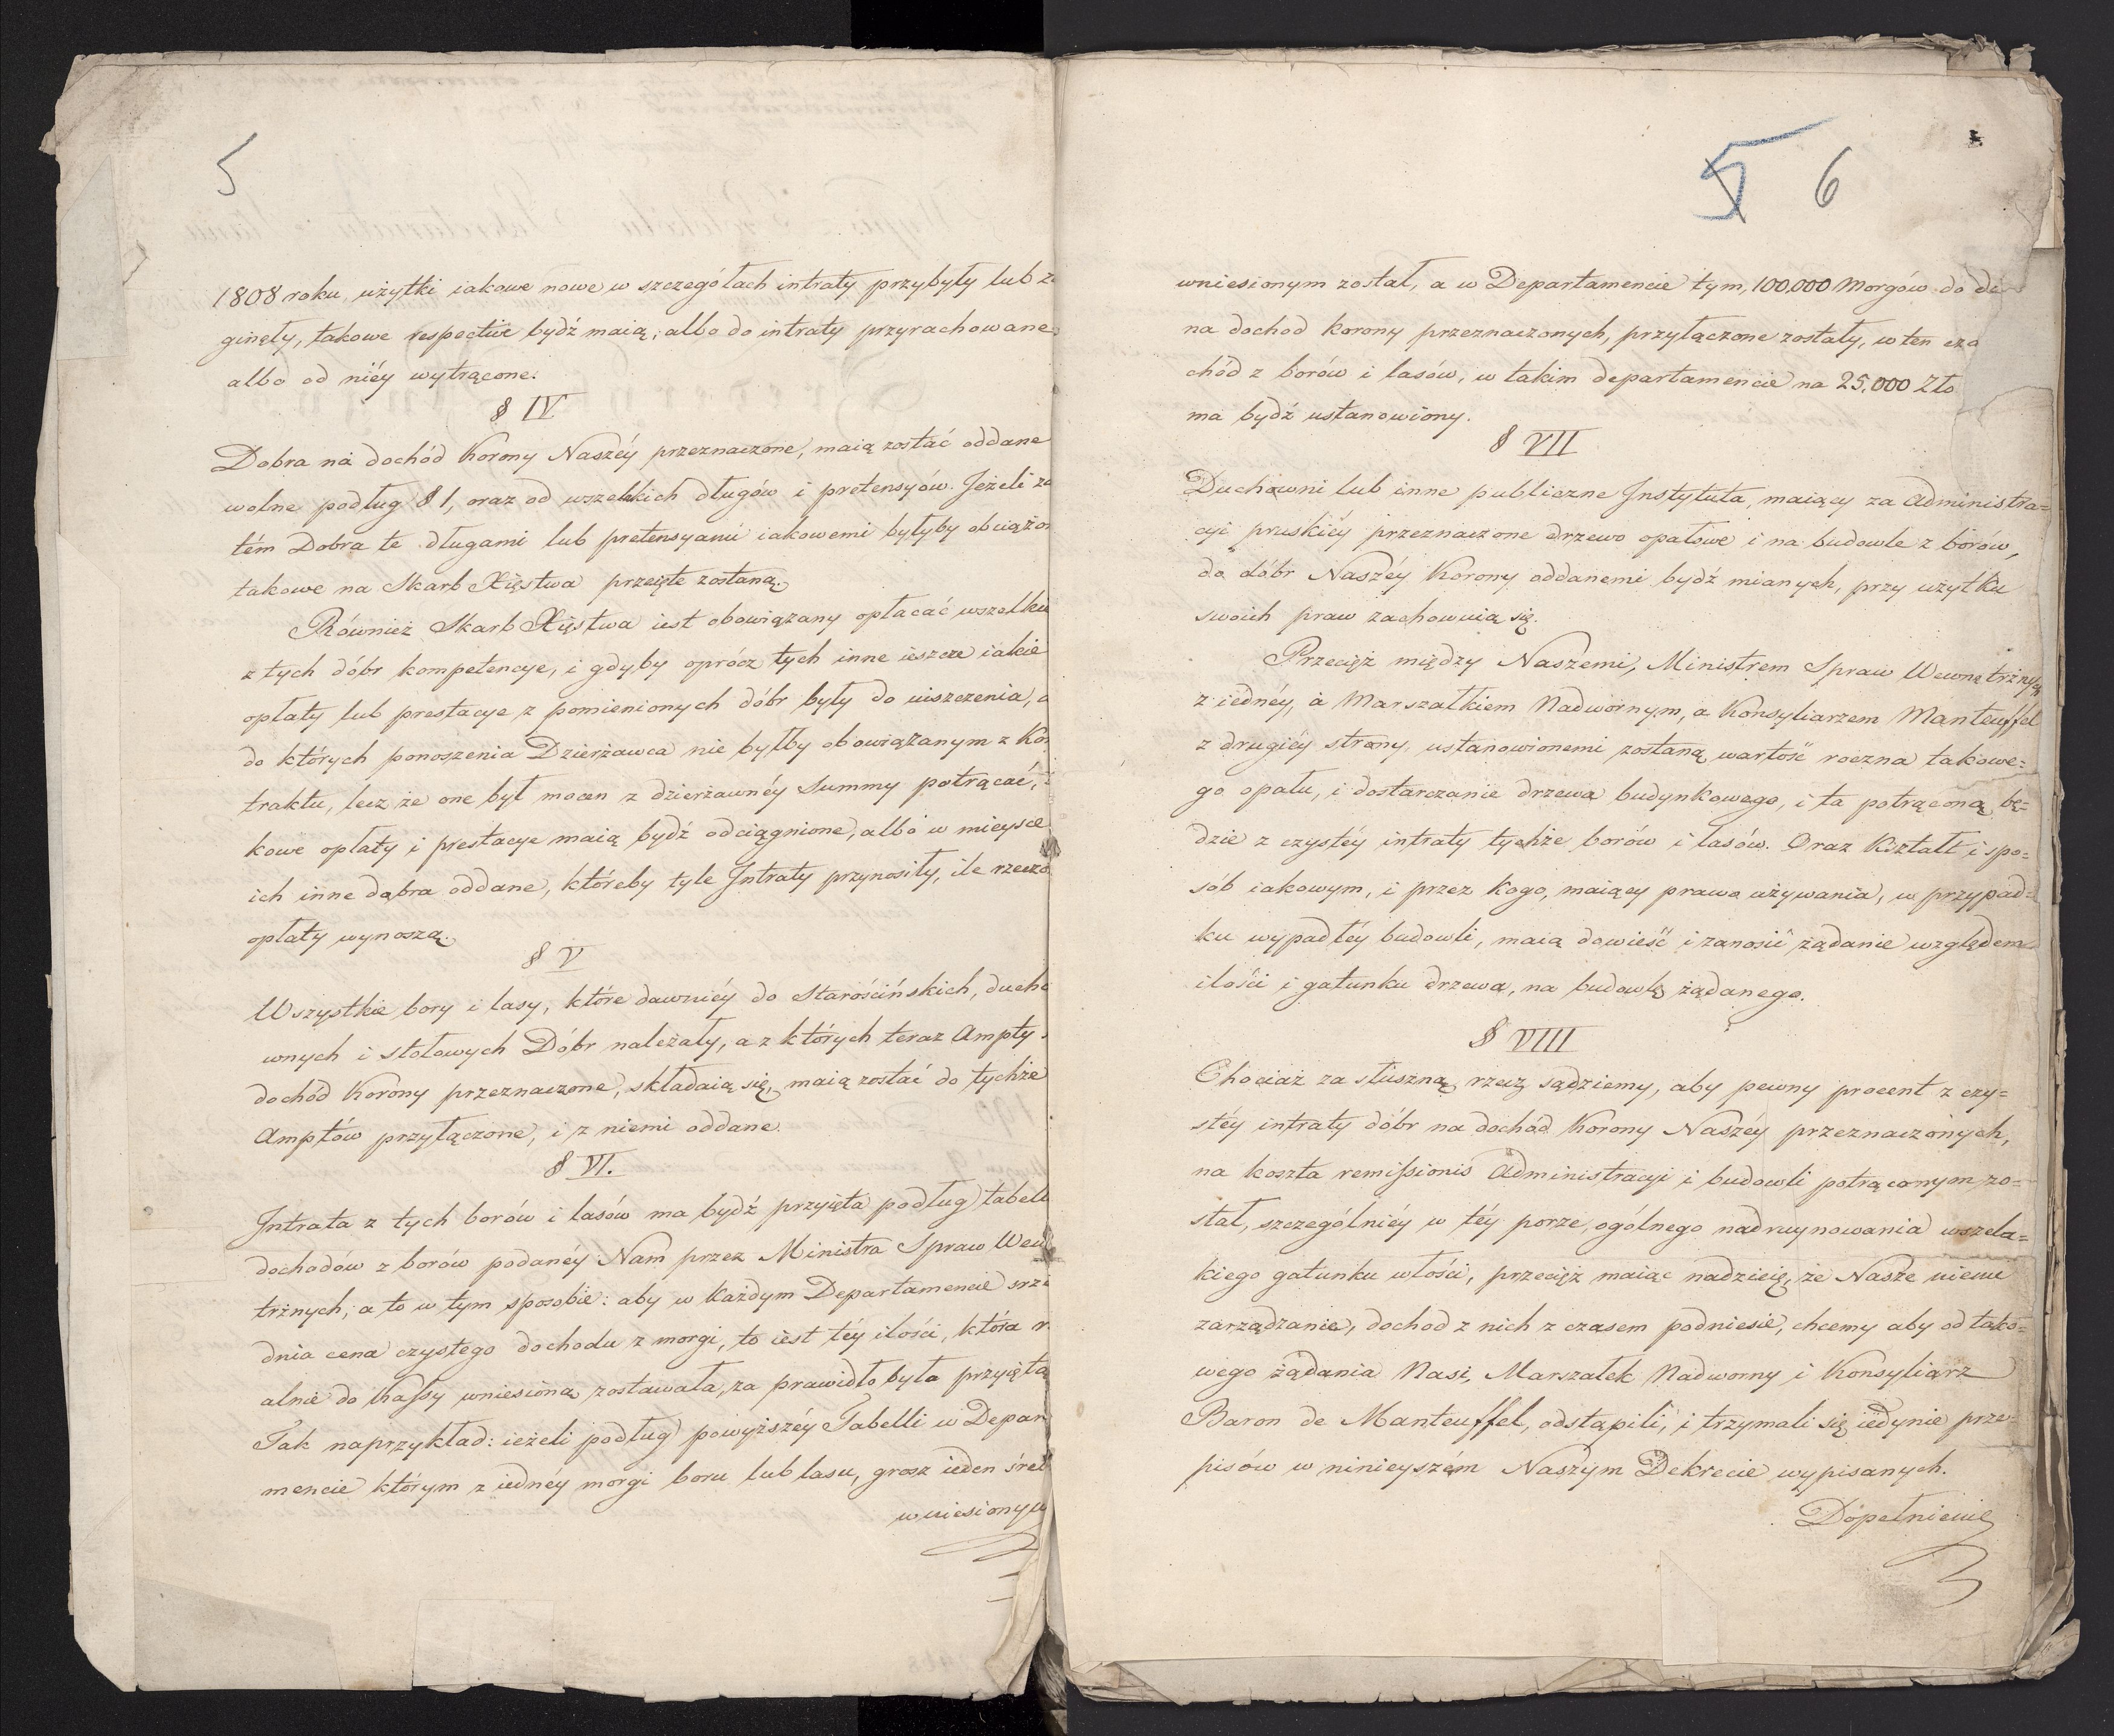 5
1808 roku, użytki iakowe nowe w szczegółach intraty przybyły lub za
ginęły, takowe respective bydź maią; albo do intraty przyrachowane
albo od niéy wytrącone.
§ IV
Dobra na dochód Korony Naszéy przeznaczone, maią zostać oddane
wolne podług § 1, oraz od wszelkich długów i pretensyów. Jeżeli za
tém Dobra te długami lub pretensyami iakowemi byłyby obciążon
takowe na Skarb Xięstwa przeięte zostaną.
Również Skarb Xięstwa iest obowiązany opłacać wszelkie
z tych dóbr kompetencye, i gdyby oprócz tych inne ieszcze iakie
opłaty lub prestacye z pomienionych dóbr były do uiszczenia, a
do których ponoszenia Dzierżawca nie byłby obowiązanym z Kon
traktu, lecz że one był mocen z dzierżawnéy Summy potrącać, t
kowe opłaty i prestacye maią bydź odciągnione, albo w mieysce
ich inne dobra oddane, któreby tyle Intraty przynosiły, ile rzeczo
opłaty wynoszą.
§ V
Wszystkie bory i lasy, które dawniéy do Starościńskich, ducho
wnych i stołowych Dóbr należały, a z których teraz Ampty
dochód Korony przeznaczone, składaią się, maią zostać do tychże
Amptów przyłączone, i z niemi oddane.
§ VI.
Intrata z tych borów i lasów ma bydź przyięta podług tabell
dochodów z borów podanéy Nam przez Ministra Spraw Wew
trznych; a to w tym sposobie: aby w każdym Departamencie srze
dnia cena czystego dochodu z morgi, to iest téy ilości, która r
alnie do Kassy wniesioną zostawała, za prawidło była przyięta
Tak naprzykład: ieżeli podług powyższéy Tabelli w Depar
mencie którym z iednéy morgi boru lub lasu, grosz ieden śreb
wniesionym
5 6
wniesionym został, a w Departamencie tym, 100,000 Morgów do dó
na dochod korony przeznaczonych, przyłączone zostały, w ten cza
chód z borów i lasów, w takim departamencie na 25.000 Zło
ma bydź ustanowiony.
§ VII
Duchowni lub inne publiczne Instytuta, maiący za Administra=
cyi pruskiéy przeznaczone drzewo opałowe i na budowle z borów,
do dóbr Naszéy Korony oddanemi bydź mianych, przy użytku
swoich praw zachowuią się.
Przecięż między Naszemi, Ministrem Spraw Wewnętrznych
z iednéy, a Marszałkiem Nadwornym, a Konsyliarzem Manteuffel
z drugiéy strony, ustanowionemi zostaną wartość roczna takowe=
go opału, i dostarczanie drzewa budynkowego, i ta potrąconą bę=
dzie z czystéy intraty tychże borów i lasów. Oraz Kształt i spo=
sób iakowym, i przez kogo, maiący prawo używania, w przypad=
ku wypadłéy budowli, maią dowieść i zanosić żądanie względem
ilości i gatunku drzewa, na budowlę żądanego.
§ VIII
Chociaż za słuszną rzecz sądziemy, aby pewny procent z czy=
stéy intraty dóbr na dochód Korony Naszéy przeznaczonych,
na koszta remissionis Administracyi i budowli potrąconym zo=
stał, szczególniéy w téy porze, ogólnego nadruynowania wszela=
kiego gatunku włości, przecięż maiąc nadzieię, że Nasze niemi
zarządzanie, dochod z nich z czasem podniesie, chcemy aby od tako=
wego żądania Nasi, Marszałek Nadworny i Konsyliarz
Baron de Manteuffel, odstąpili, i trzymali się iedynie prze=
pisów w ninieyszém Naszym Dekrecie wypisanych.
Dopełnienie